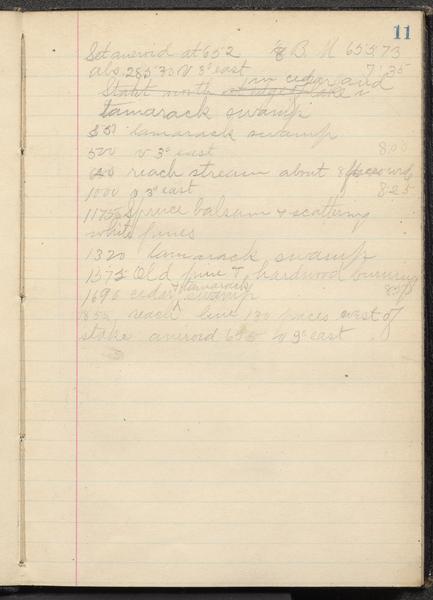 11
Set aneroid at 652 B. M 655.73
abs. 285 30 V 3° east 7:35
in cedar and
Start north
tamarack swamp
tamarack swamp
500 v 3° east 800
600 reach stream about 8 paces wide
1000 v 3° east 825
1175 Spruce balsam & scattering
white pines
1320 tamarack swamp
1575 Old pine & hardwood burning
1690 cedar & tamarack swamp
1855 reach line 130 paces west of
stake aneroid v 3° east